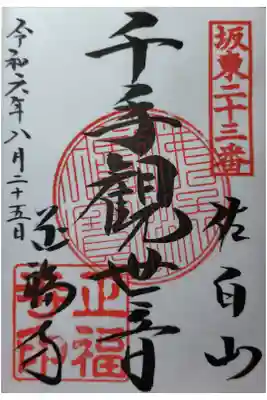 坂東二十三番
佐白山
千手観世音
正福寺
令和六年八月二十五日
正福
寺印